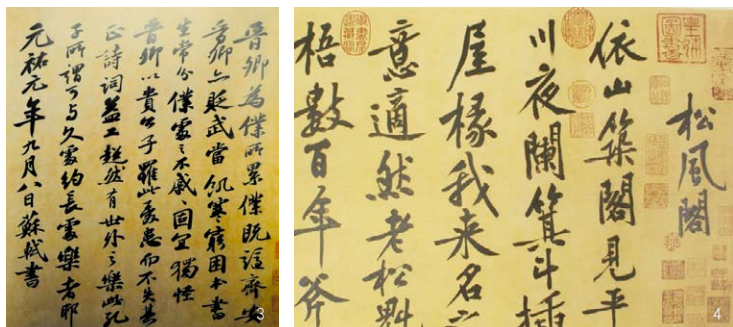 晉卿為僕所累僕既謫齊安
晉卿亦貶武當飢寒窮困本書
生常分僕處之不戚戚固宜獨怪
晉卿以貴公子罹此憂患而不失其
正詩詞益工超然有世外之樂此孔
子所謂可与久處約長處樂者耶
元祐元年九月八日蘇軾書
3
松風閣
依山築閣見平
川夜闌箕斗插
屋椽我來名之
意適然老松魁
梧數百年斧
4